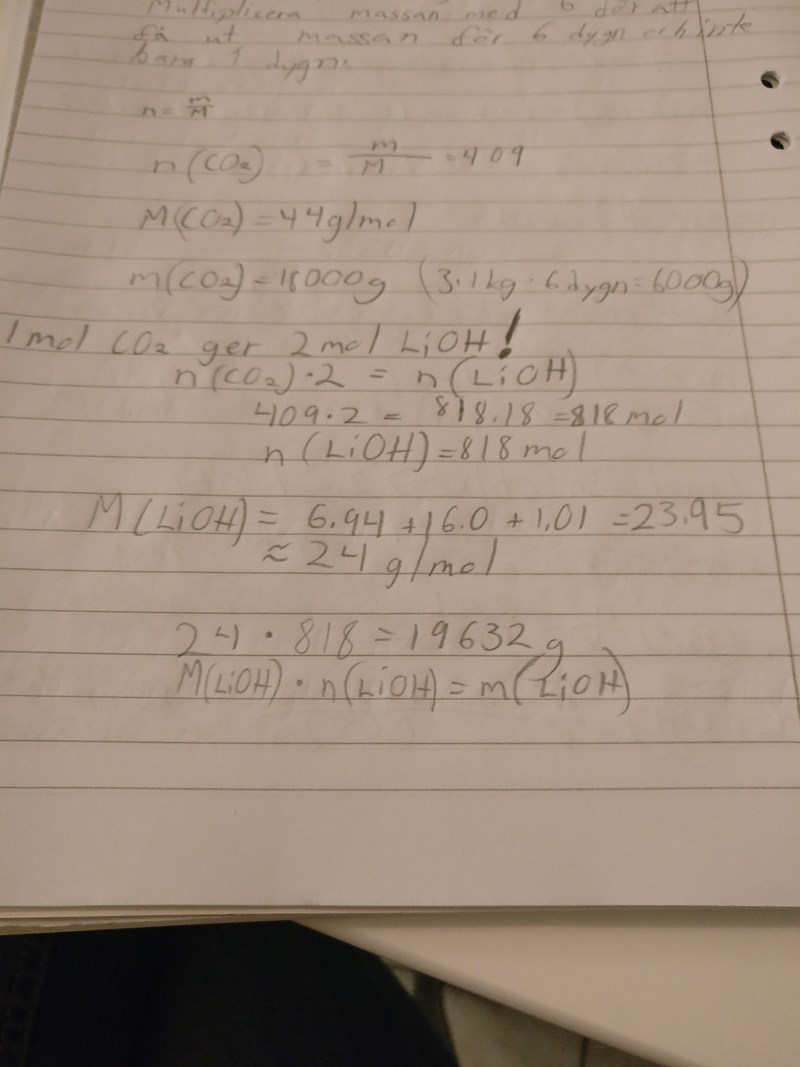 Multiplicera massan med 6 för att
få ut massan för 6 dygn och inte
bara 1 dygn.
n = m/M
n(CO₂) = m/M = 409
M(CO₂) = 44g/mol
m(CO₂) = 18000g (3.1kg · 6dygn = 6000g)
1 mol CO₂ ger 2 mol LiOH!
n(CO₂) · 2 = n(LiOH)
409 · 2 = 818.18 = 818 mol
n(LiOH) = 818 mol
M(LiOH) = 6.94 + 16.0 + 1.01 = 23.95
≈ 24 g/mol
24 · 818 = 19632 g
M(LiOH) · n(LiOH) = m(LiOH)